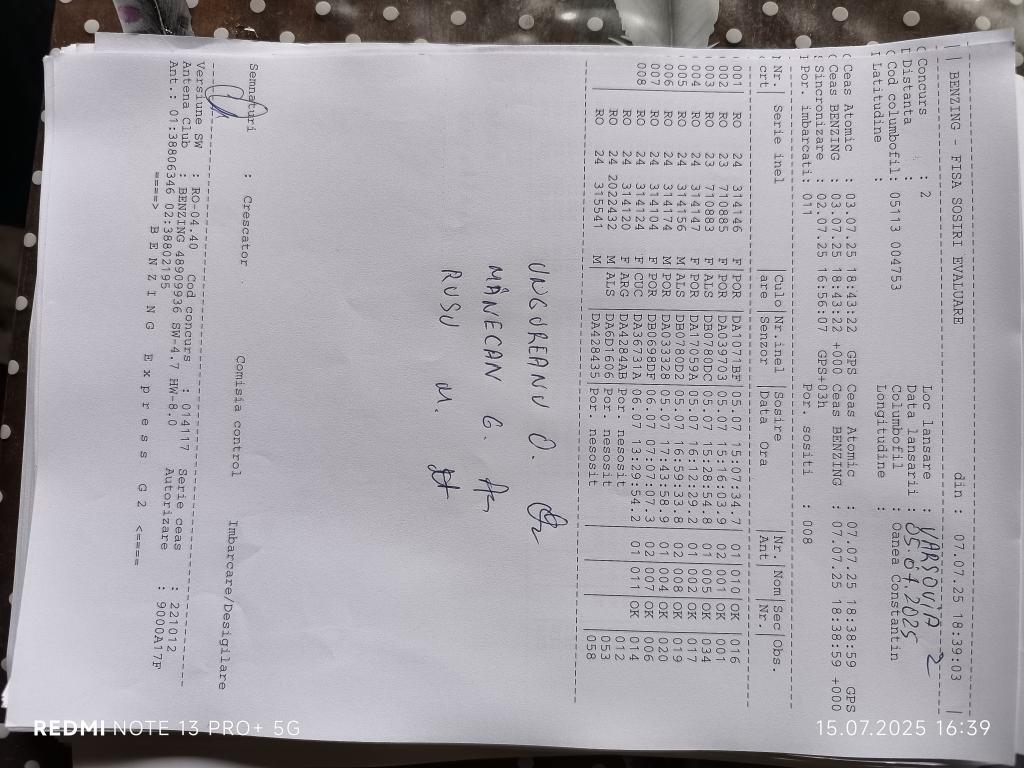 | BENZING - FISA SOSIRI EVALUARE din : 07.07.25 18:39:03 |
Concurs : 2 Loc lansare : VARSOVIA 2
Distanta : Data lansarii : 05.07.2025
Cod columbofil: 05113 004753 Columbofil : Oanea Constantin
Latitudine : Longitudine :
Ceas Atomic : 03.07.25 18:43:22 GPS Ceas Atomic : 07.07.25 18:38:59 GPS
Ceas BENZING : 03.07.25 18:43:22 +000 Ceas BENZING : 07.07.25 18:38:59 +000
Sincronizare : 02.07.25 16:56:07 GPS+03h
Por. imbarcati: 011 Por. sositi : 008
Nr. | Serie inel | Culo | Nr.inel | Sosire | Nr. | Nom | Sec | Obs.
crt | | are | Senzor | Data Ora | Ant | Nr. |
001 RO 24 314146 F POR DA1071BF 05.07 15:07:34.7 01 010 OK 016
002 RO 23 710885 F POR DA039703 05.07 15:16:03.9 02 001 OK 001
003 RO 23 710883 F ALS DB0780DC 05.07 15:28:54.8 01 005 OK 034
004 RO 24 314147 F POR DA17059A 05.07 16:12:29.2 01 002 OK 017
005 RO 24 314156 M ALS DB0780D2 05.07 16:59:33.8 02 008 OK 019
006 RO 24 314174 M POR DA033328 05.07 17:43:58.9 01 004 OK 020
007 RO 24 314104 F POR DB0698DF 06.07 07:07:07.3 02 007 OK 006
008 RO 24 314124 F CUC DA36731A 06.07 13:29:54.2 01 011 OK 014
RO 24 314120 F ARG DA4284AB Por. nesosit 012
RO 24 2022432 M ALS DA6D1606 Por. nesosit 053
RO 24 315541 M DA428435 Por. nesosit 058
UNGUREANU O.
MÂNECAN G.
RUSU M.
Semnaturi : Crescator Comisia control Imbarcare/Desigilare
Versiune SW : RO-04.40 Cod concurs : 014117 Serie ceas : 221012
Antena Club : BENZING 48909936 SW-4.7 HW-8.0 Autorizare : 9000A17F
Ant.: 01:38806346 02:38802195
====> B E N Z I N G E x p r e s s G 2 <====
REDMI NOTE 13 PRO+ 5G
15.07.2025 16:39